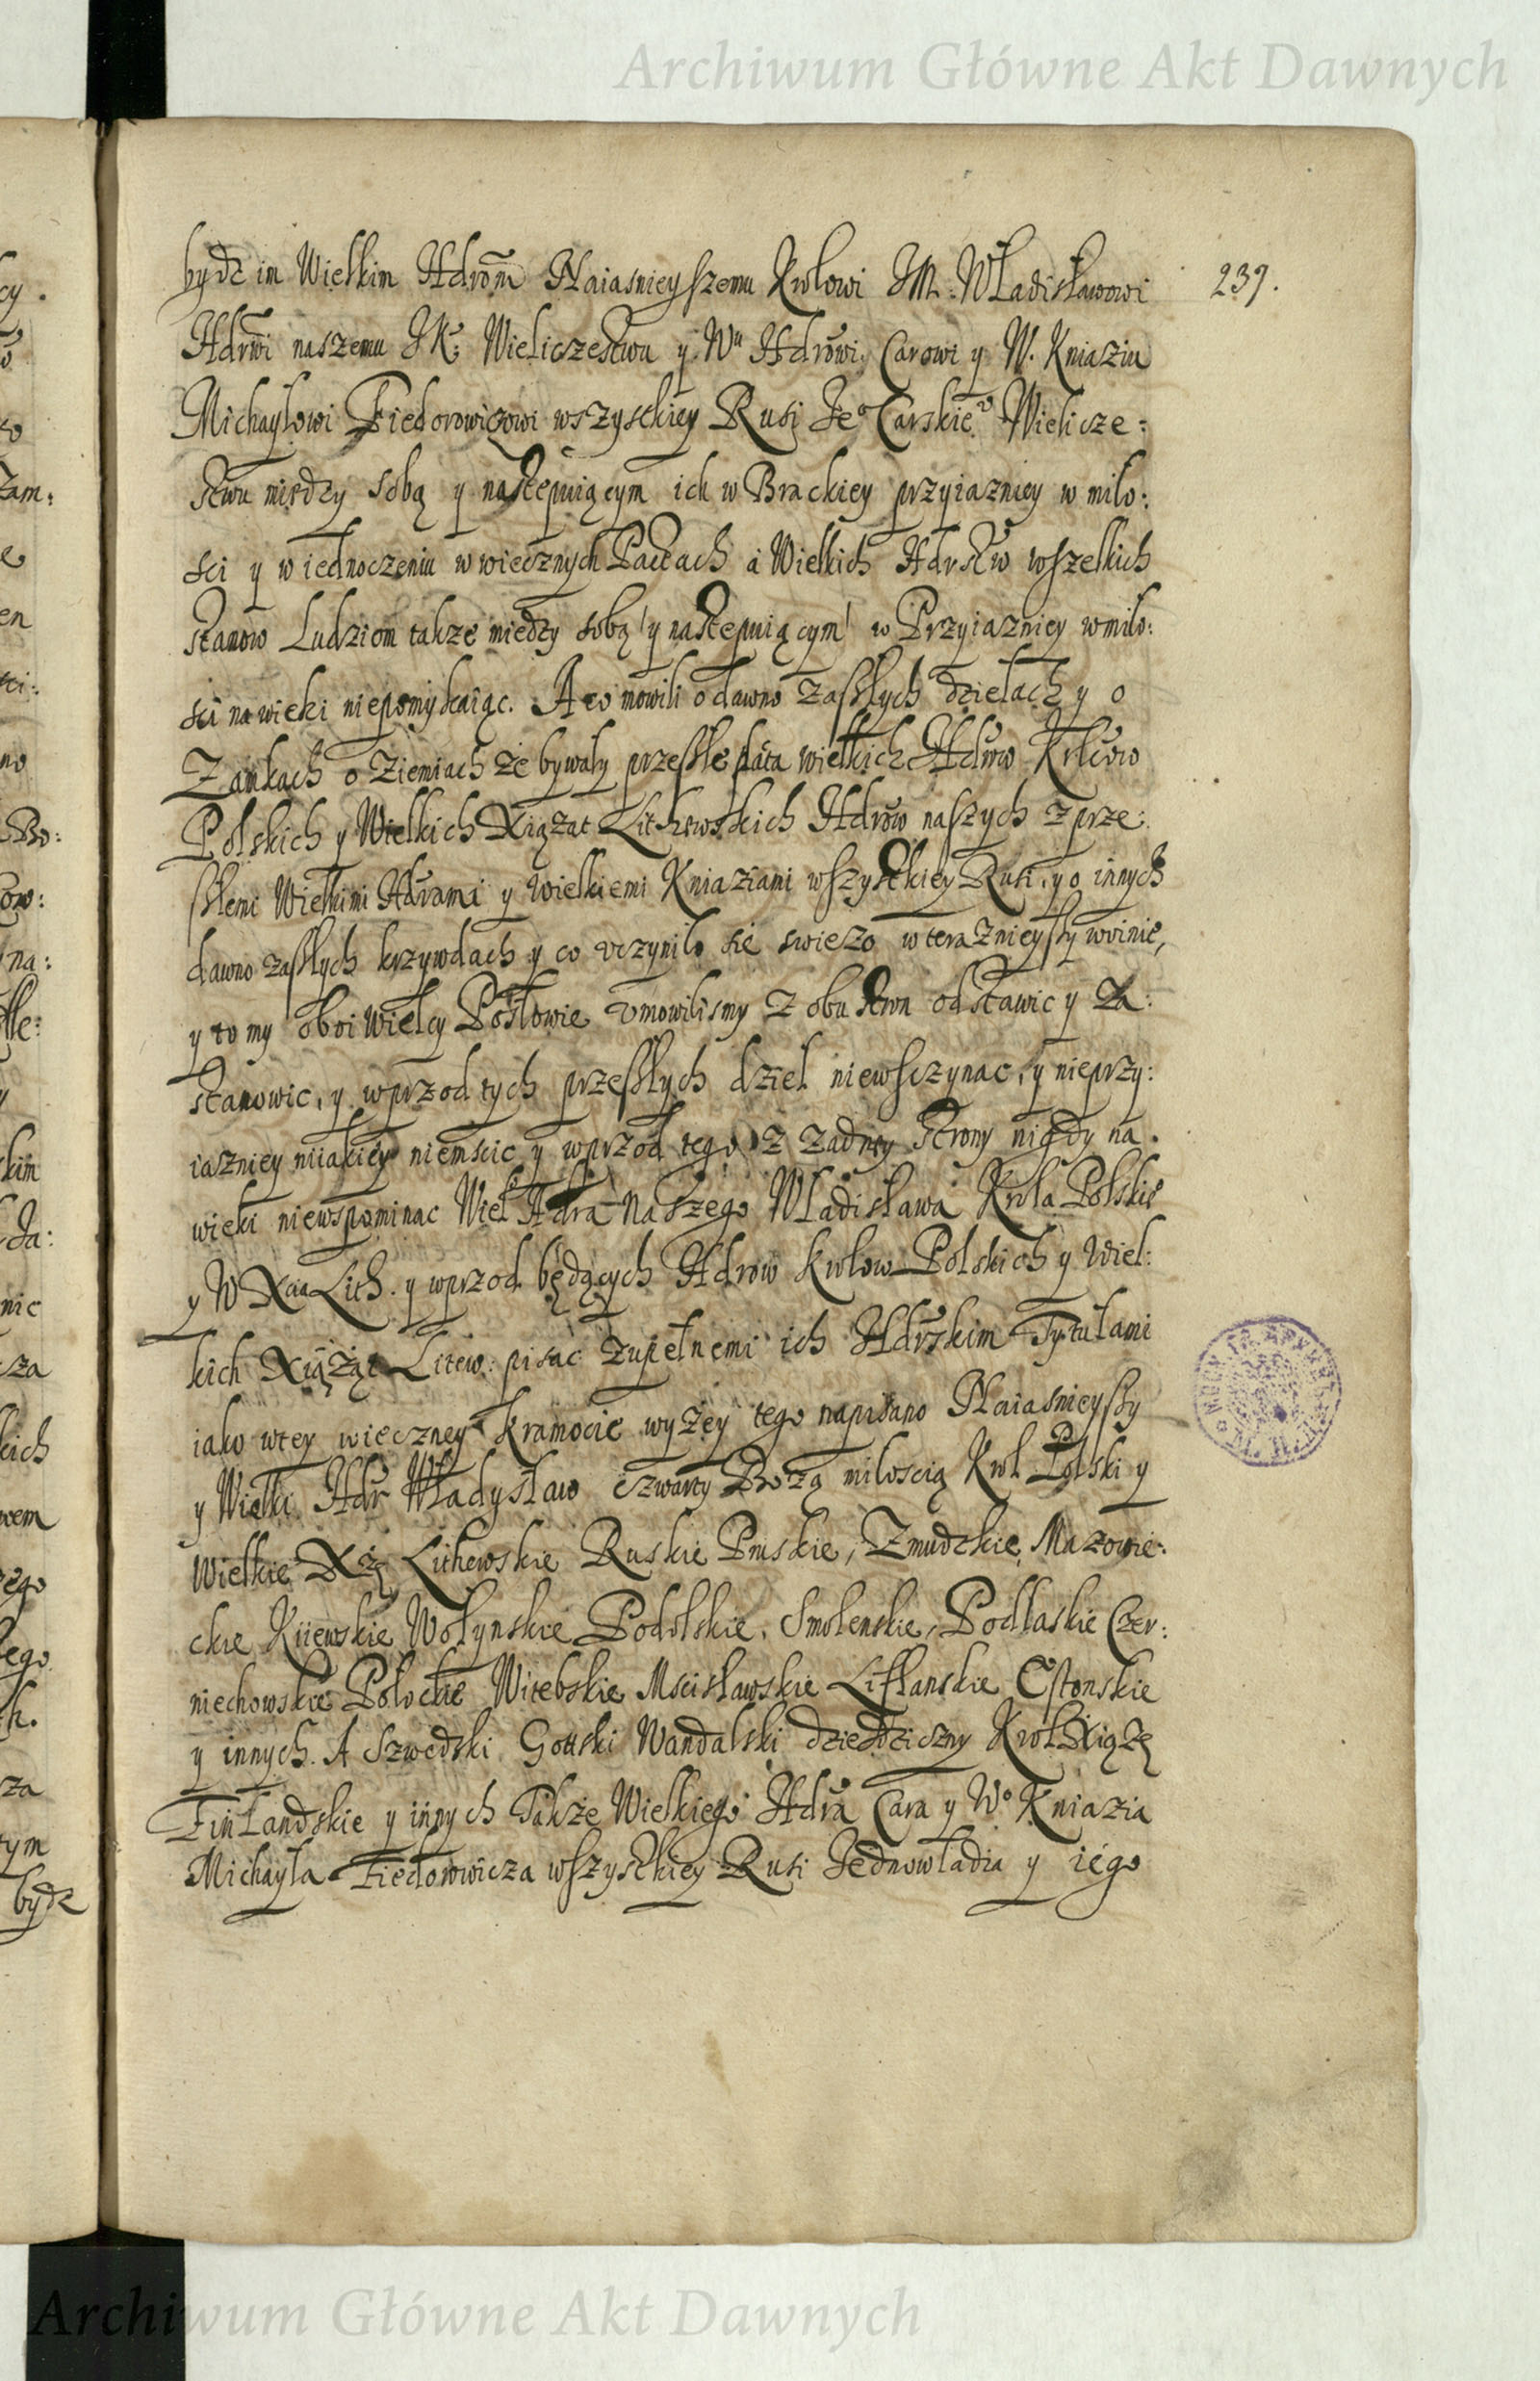 Archiwum Główne Akt Dawnych
239.
bydz im Wielkim Hdrom Naiasnieyszemu Krolowi JM. Wladisławowi
Hdrwi naszemu JK: Wieliczestwu y Wu Hdrowi, Carowi y W. Kniaziu
Michayłowi Fiedorowiczowi wszystkiey Rusi Jeo Carskie Wielicze:
stwu między sobą y następuiącym ich w Brackiey przyiazniey w milo:
sci y w iednoczeniu w wiecznych Pactach a Wielkich Hdrstw wszelkich
stanow Ludziom takze między sobą y następuiącym w Przyiazniey w milo:
sci na wieki niepomykaiąc. A co mowili o dawno zaszłych dzielach y o
Zamkach o Ziemiach że bywały przeszłe lata wielkich Hdrow Krlow
Polskich y Wielkich Xiążat Lithewskich Hdrow naszych z prze:
szłemi Wielkimi Hdrami y wielkiemi Kniaziami wszystkiey Rusi, y o innych
dawno zaszłych krzywdach y co vczyniło sie swiezo w teraznieyszy woinie,
y to my oboi Wielcy Posłowie vmowilismy z obu stron odstawic y Za:
stanowic, y wprzod tych przeszłych dziel niewsczynac, y nieprzy:
iazniey niiakiey niemscic y wprzod tego z zadney strony nigdy na
wieki niewspominac Wiel Hdra naszego Wladisława Krola Polskie
y W Xcia Lith. y wprzod będących Hdrow Krolow Polskich y Wiel:
kich Xiążąt Litew: pisac zupełnemi ich Hdrskim Tytułami
iako w tey wieczney kramocie wyżey tego napisano Naiasnieyszy
y Wielki Hdr Władysław czwarty Bożą miloscią Krol Polski y
Wielkie Xżę Lithewskie Ruskie Pruskie, Zmudzkie, Mazowie:
ckie Kiiewskie Wołynskie Podolskie, Smolenskie, Podlaskie Czer:
niechowskie Połockie Witebskie Mscisławskie Liflanskie Estonskie
y innych. A Szwedski Gottski Wandalski dziedziczny Krol Xiążę
Finlandskie y innych Także Wielkiego Hdra Cara y Wo Kniazia
Michayła Fiedorowicza wszystkiey Rusi Jednowladia y iego
Archiwum Główne Akt Dawnych